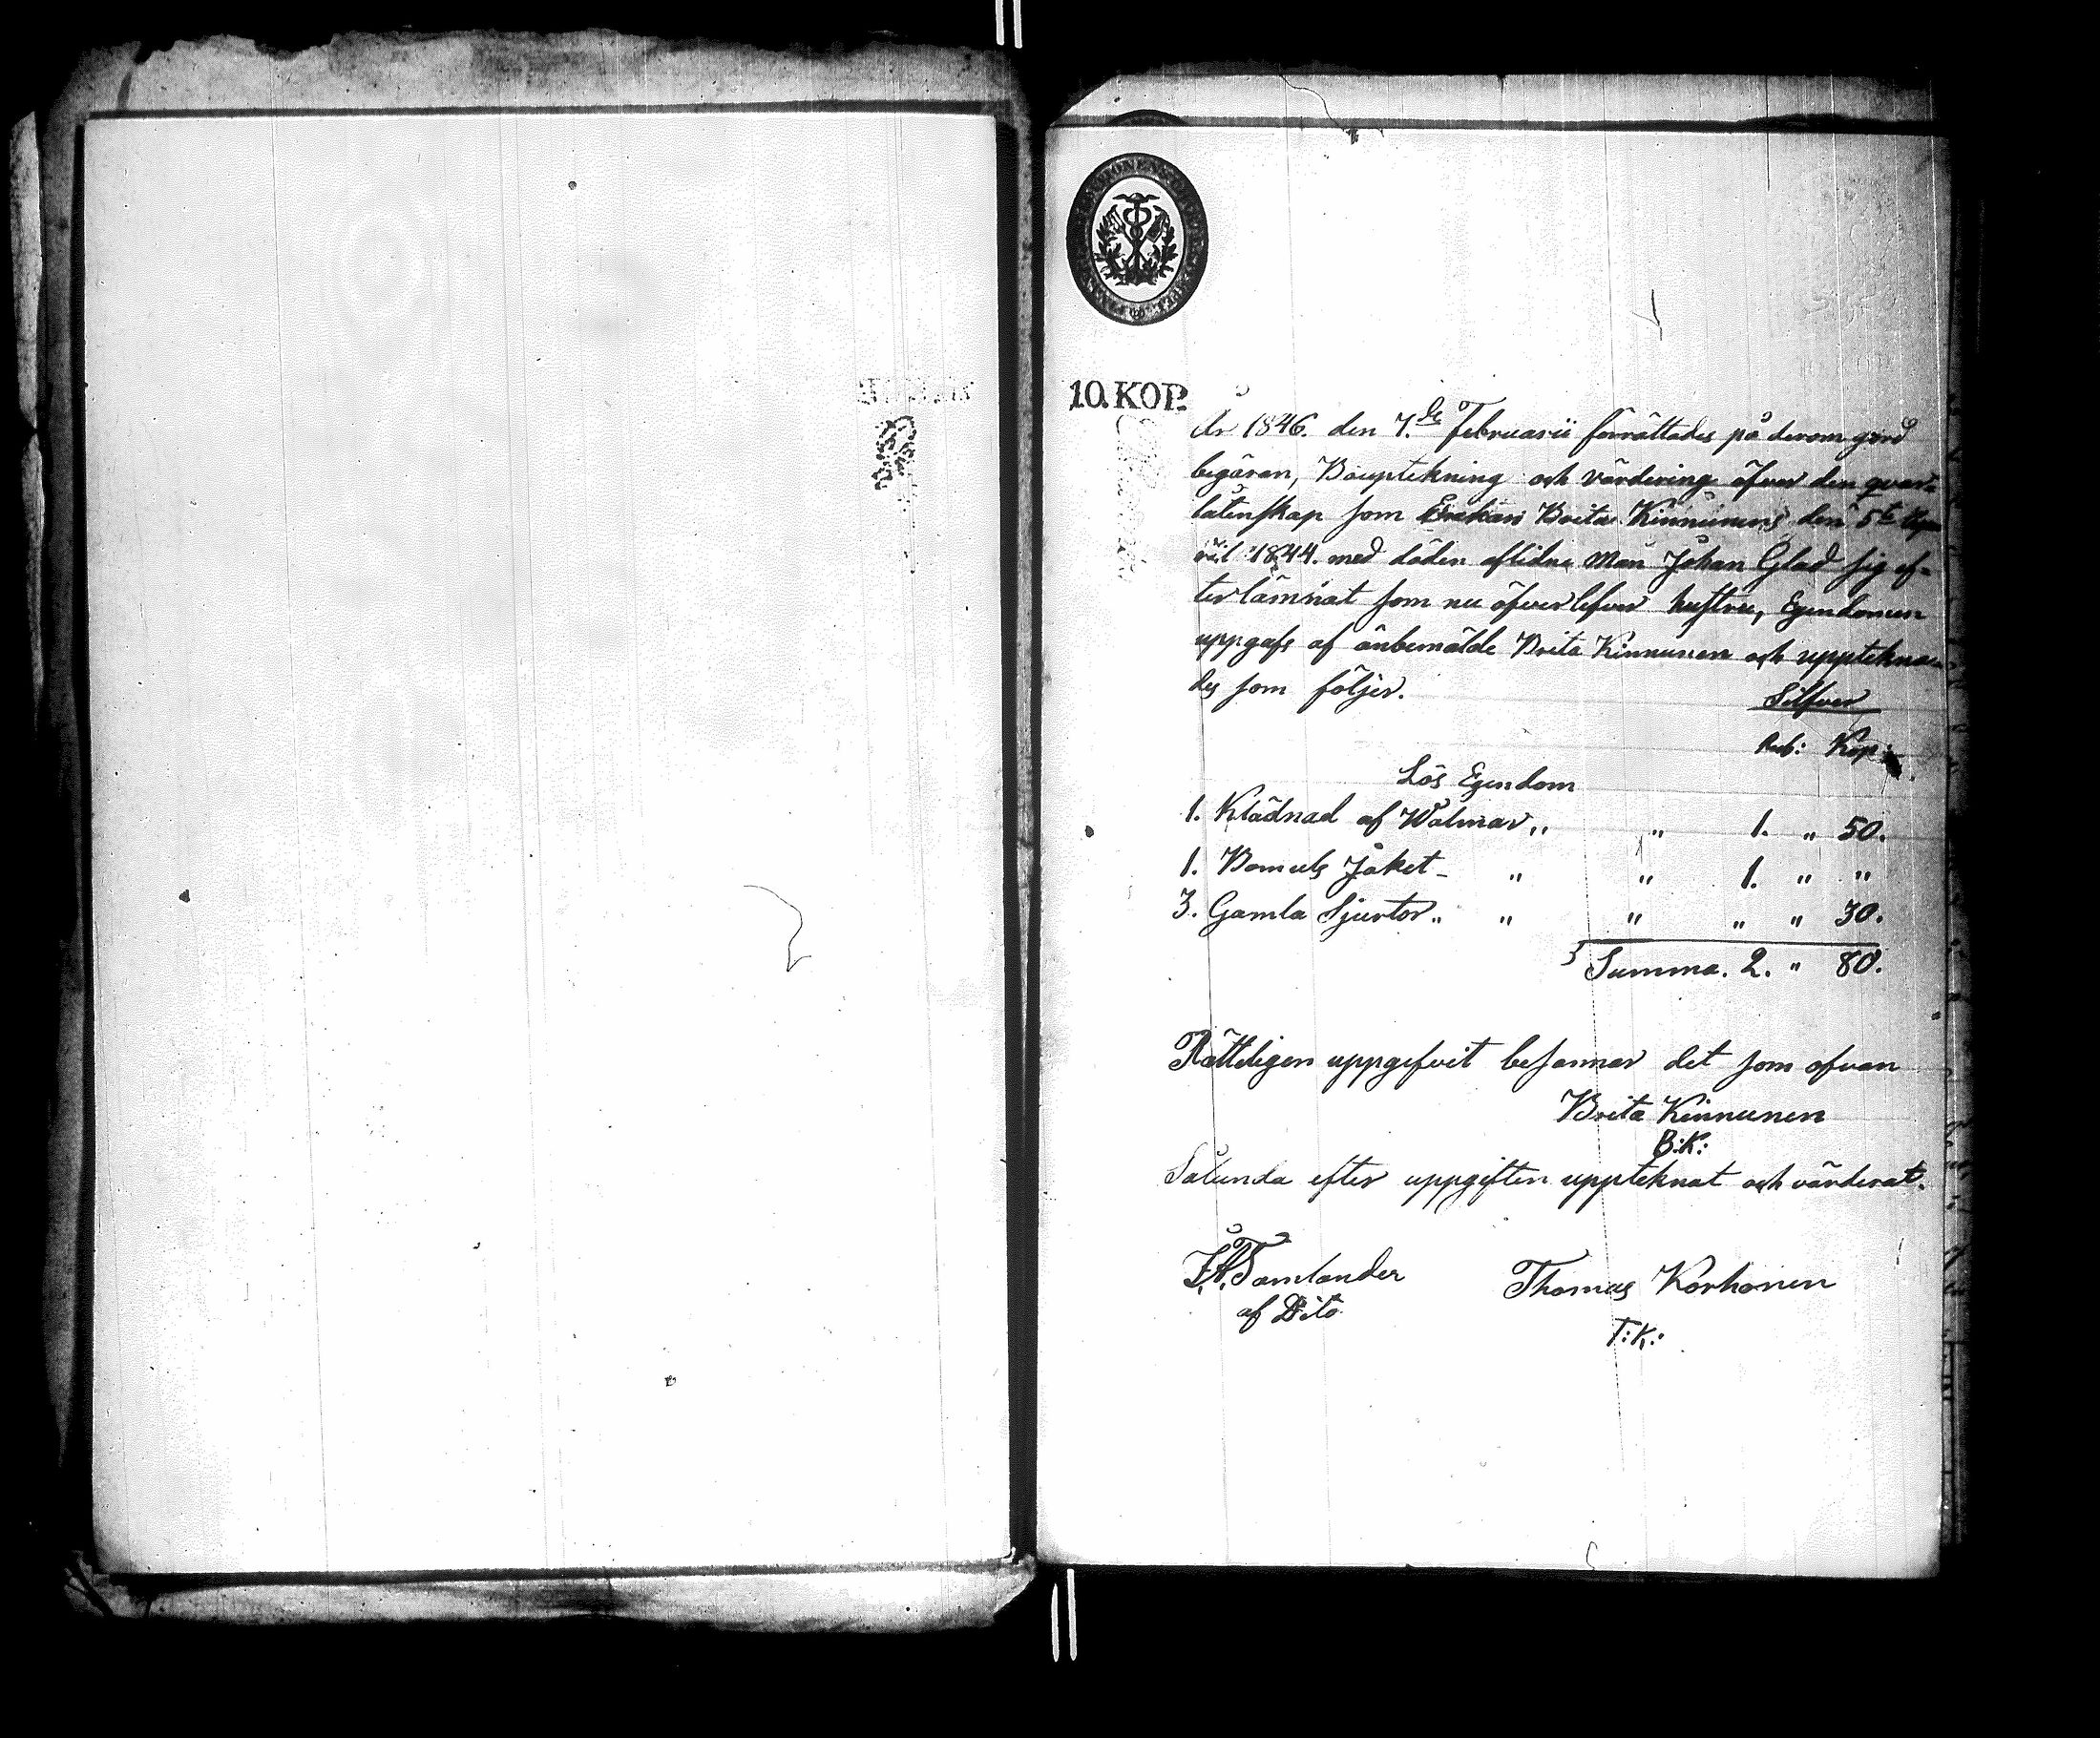 10. KOP.
År 1846. den 7.de Februarii förrättades på derom gjord
begäran, Bouptekning och värdering öfver den qvar-
låtenskap som Enkan Brita Kinnunens den 5te Ap-
ril 1844. med döden aflidne Man Johan Glad sig ef-
terlämnat som nu öfverlefver hustru, Egendomen
uppgafs af ånbemälde Brita Kinnunen och uppteknа-
des som följer.
Silfver
Rub: Kop:
Lös Egendom
1. Klädnad af Walmar „ „ 1. „ 50.
1. Bomuls Jaket - „ „ 1. „ „
3. Gamla Sjurtor „ „ „ „ „ 30.
Summa. 2. „ 80.
Rätteligen uppgifvit besannar det som ofvan
Brita Kinnunen
B:K:
Sålunda efter uppgiften upptek​nat och värderat.
Tamlander
af Dito
Thomas Korhonen
T:K: